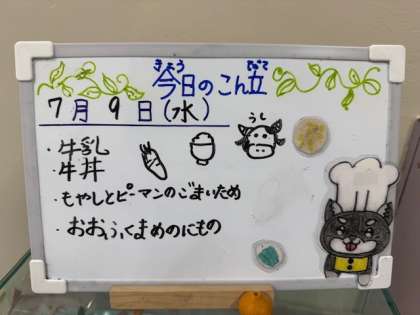 きょう だて
今日のこん立
7月9日(水)
うし
・牛乳
・牛丼
・もやしとピーマンのごまいため
・おおふくまめのにもの